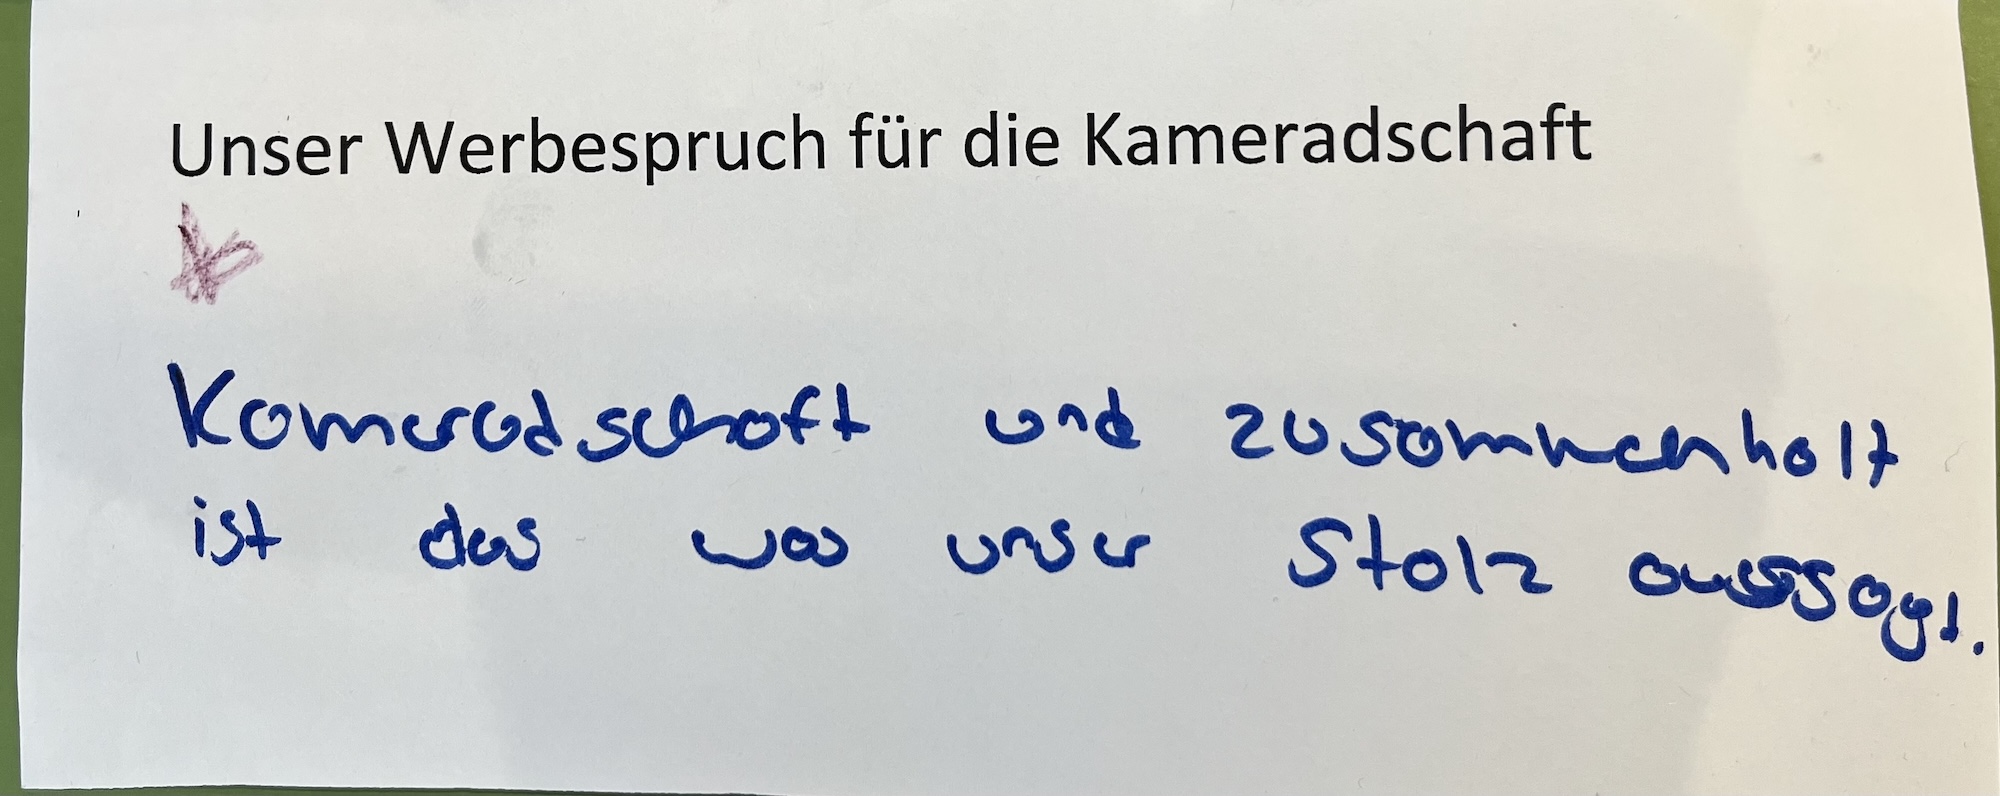 Unser Werbespruch für die Kameradschaft
Kameradschaft und zusammenhalt
ist das was unser Stolz aussagt.